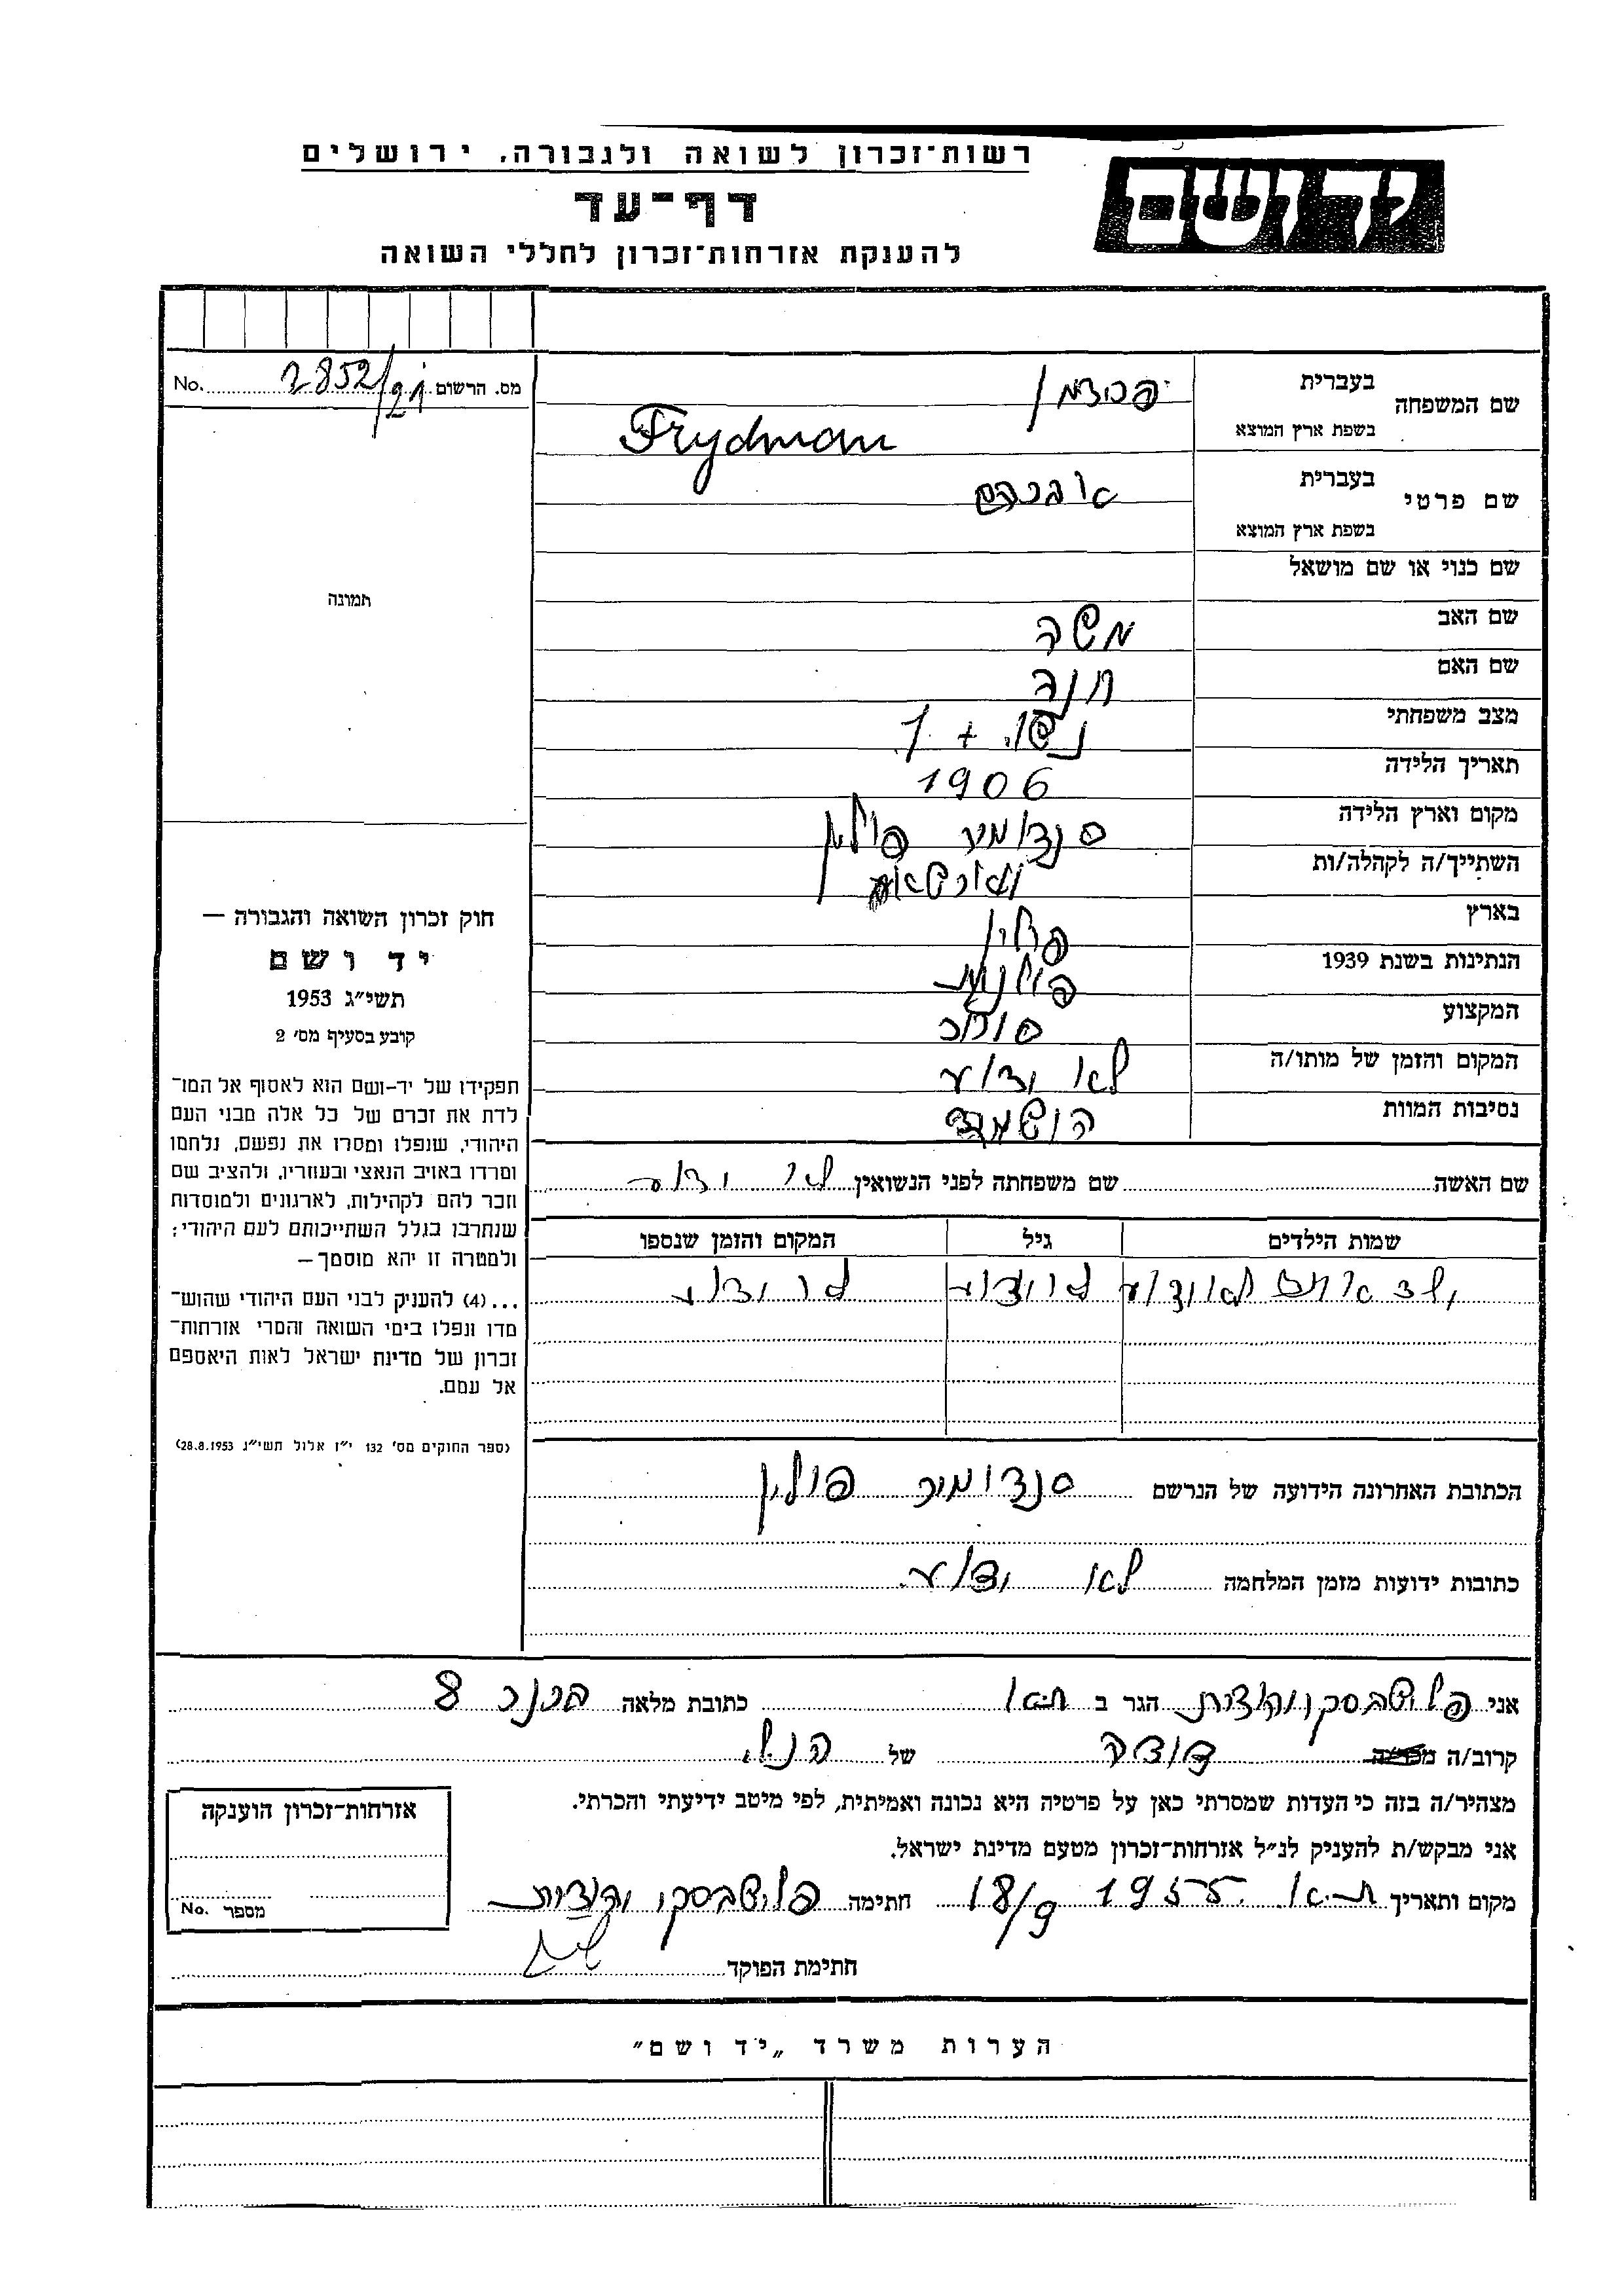 רשות־זכרון לשואה ולגבורה, ירושלים
יד ושם
דף־עד
להענקת אזרחות־זכרון לחללי השואה
מס. הרשום 2852/21 No.
שם המשפחה בעברית פרידמן
בשפת ארץ המוצא Frydman
שם פרטי בעברית אברהם
בשפת ארץ המוצא
שם כנוי או שם מושאל
שם האב משה
שם האם חנה
מצב משפחתי נשוי + 1
תאריך הלידה 1906
מקום וארץ הלידה סנדומיר פולין
השתייך/ה לקהלה/ות
בארץ פולין
הנתינות בשנת 1939 פולנית
המקצוע סוחר
המקום והזמן של מותו/ה לא ידוע
נסיבות המוות הושמד
תמונה
חוק זכרון השואה והגבורה —
יד ושם
תשי״ג 1953
קובע בסעיף מס׳ 2
תפקידו של יד-ושם הוא לאסוף אל המו־
לדת את זכרם של כל אלה מבני העם
היהודי, שנפלו ומסרו את נפשם, נלחמו
ומרדו באויב הנאצי ובעוזריו, ולהציב שם
וזכר להם לקהילות, לארגונים ולמוסדות
שנחרבו בגלל השתייכותם לעם היהודי;
ולמטרה זו יהא מוסמך —
...(4) להעניק לבני העם היהודי שהוש־
מדו ונפלו בימי השואה והמרי אזרחות־
זכרון של מדינת ישראל לאות היאספם
אל עמם.
(ספר החוקים מס׳ 132 י״ז אלול תשי״ג 28.8.1953)
שם האשה שם משפחתה לפני הנשואין לא ידוע
שמות הילדים גיל המקום והזמן שנספו
ילד אחד לא ידוע לא ידוע לא ידוע
הכתובת האחרונה הידועה של הנרשם סנדומיר פולין
כתובות ידועות מזמן המלחמה לא ידוע
אני יהודית הגר ב ת״א כתובת מלאה 8
קרוב/ה דודה של הנ״ל
מצהיר/ה בזה כי העדות שמסרתי כאן על פרטיה היא נכונה ואמיתית, לפי מיטב ידיעתי והכרתי.
אני מבקש/ת להעניק לנ״ל אזרחות־זכרון מטעם מדינת ישראל.
מקום ותאריך ת״א 18/9 1955 חתימה יהודית
חתימת הפוקד
אזרחות־זכרון הוענקה
מספר No.
הערות משרד „יד ושם״